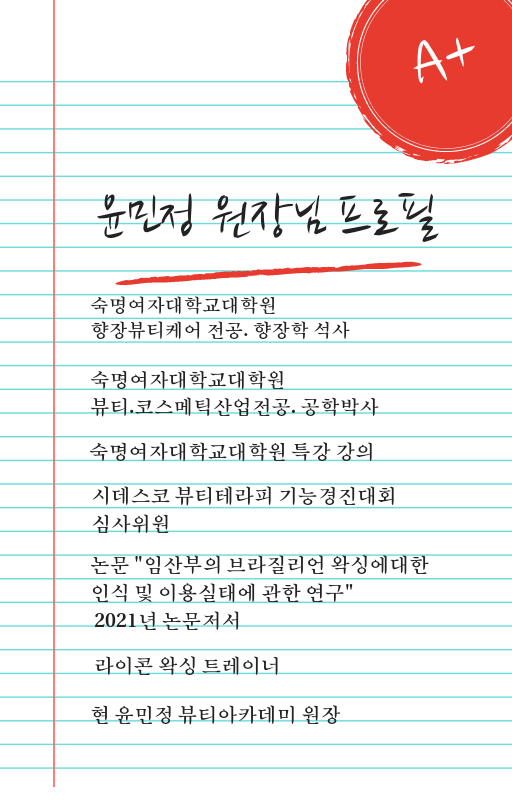 A+
윤민정 원장님 프로필
숙명여자대학교대학원
향장뷰티케어 전공. 향장학 석사
숙명여자대학교대학원
뷰티.코스메틱산업전공. 공학박사
숙명여자대학교대학원 특강 강의
시데스코 뷰티테라피 기능경진대회
심사위원
논문 "임산부의 브라질리언 왁싱에대한
인식 및 이용실태에 관한 연구"
2021년 논문저서
라이콘 왁싱 트레이너
현 윤민정 뷰티아카데미 원장